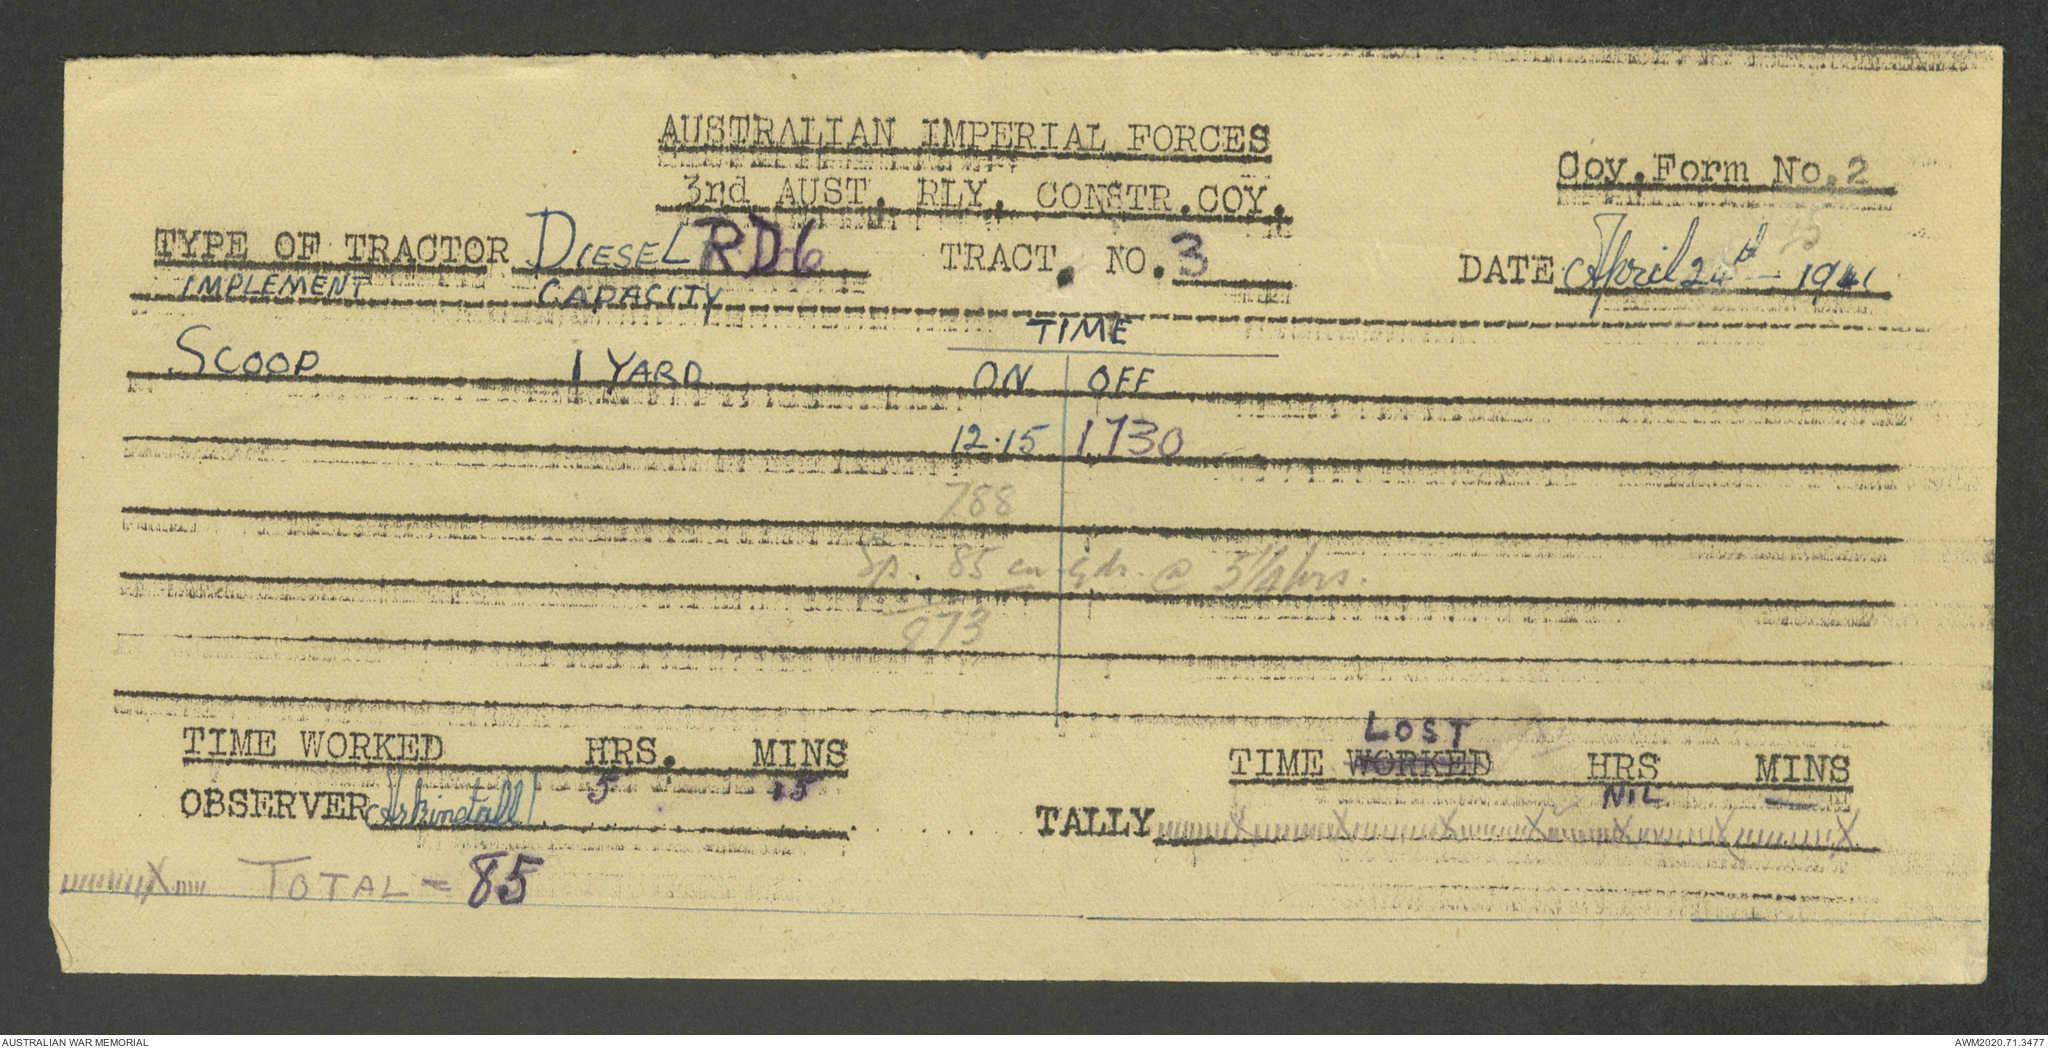 AUSTRALIAN IMPERIAL FORCES
3rd AUST. RLY. CONSTR. COY.
Coy. Form No. 2
TYPE OF TRACTOR DIESEL RD6 TRACT. NO. 3 DATE April 24th - 1941
15
IMPLEMENT CAPACITY
TIME
SCOOP 1 YARD ON OFF
12.15 1730
788
Sp. 85 cu yds. @ 5 1/4 hrs.
873
LOST
TIME WORKED HRS. MINS TIME WORKED HRS MINS
5 15 NIL —
OBSERVER Arkinstall TALLY
TOTAL = 85
AUSTRALIAN WAR MEMORIAL AWM2020.71.3477